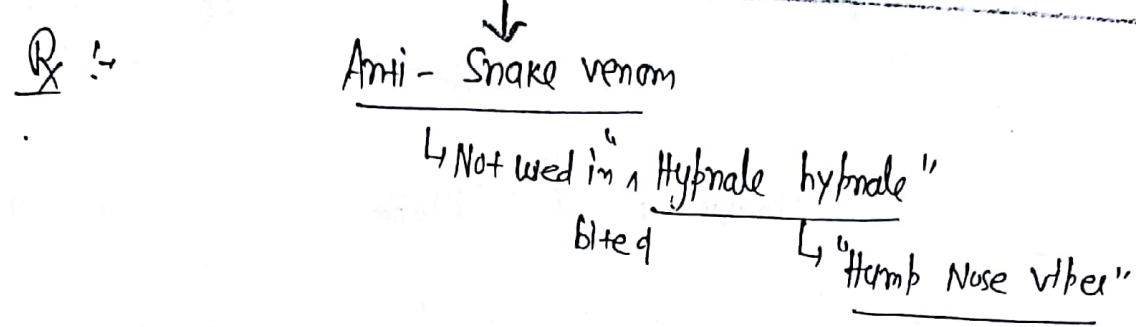 Rx :- Anti - Snake venom
↳ Not used in "Hypnale hypnale"
bite
↳ "Hump Nose viper"